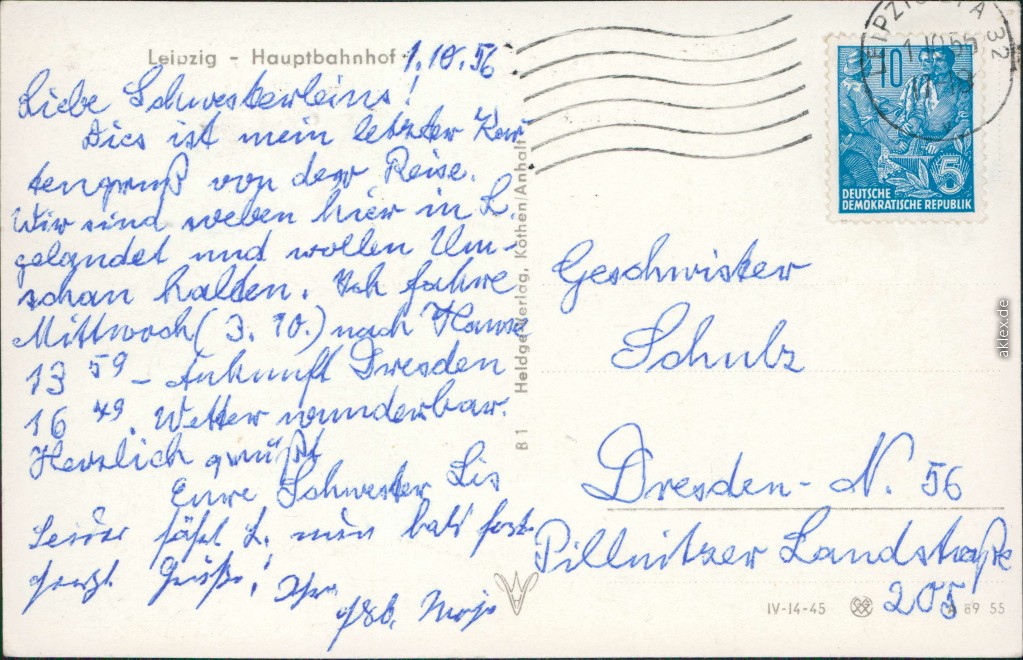 Leipzig - Hauptbahnhof
1.10.56
Liebe Schwesterleins!
Dies ist mein letzter Kar-
tengruß von der Reise.
Wir sind soeben hier in L.
gelandet und wollen Um-
schau halten. Ich fahre
Mittwoch (3.10.) nach Hause
13 59 - Ankunft Dresden
16 49. Wetter wunderbar.
Herzlich grüßt
Eure Schwester Lis
Leider fährt L. nun bald fort.
Grüße! Ihr
B 1 Heldge-Verlag, Köthen/Anhalt
LEIPZIG
32
10
5
DEUTSCHE
DEMOKRATISCHE REPUBLIK
Geschwister
Schulz
Dresden - N. 56
Pillnitzer Landstraße
205
IV-14-45
A 89 55
aklex.de